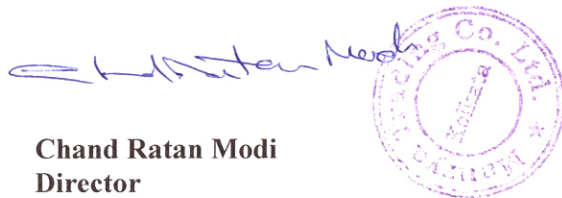 Chand Ratan Modi
Co. Ltd.
Kolkata
Chand Ratan Modi
Director